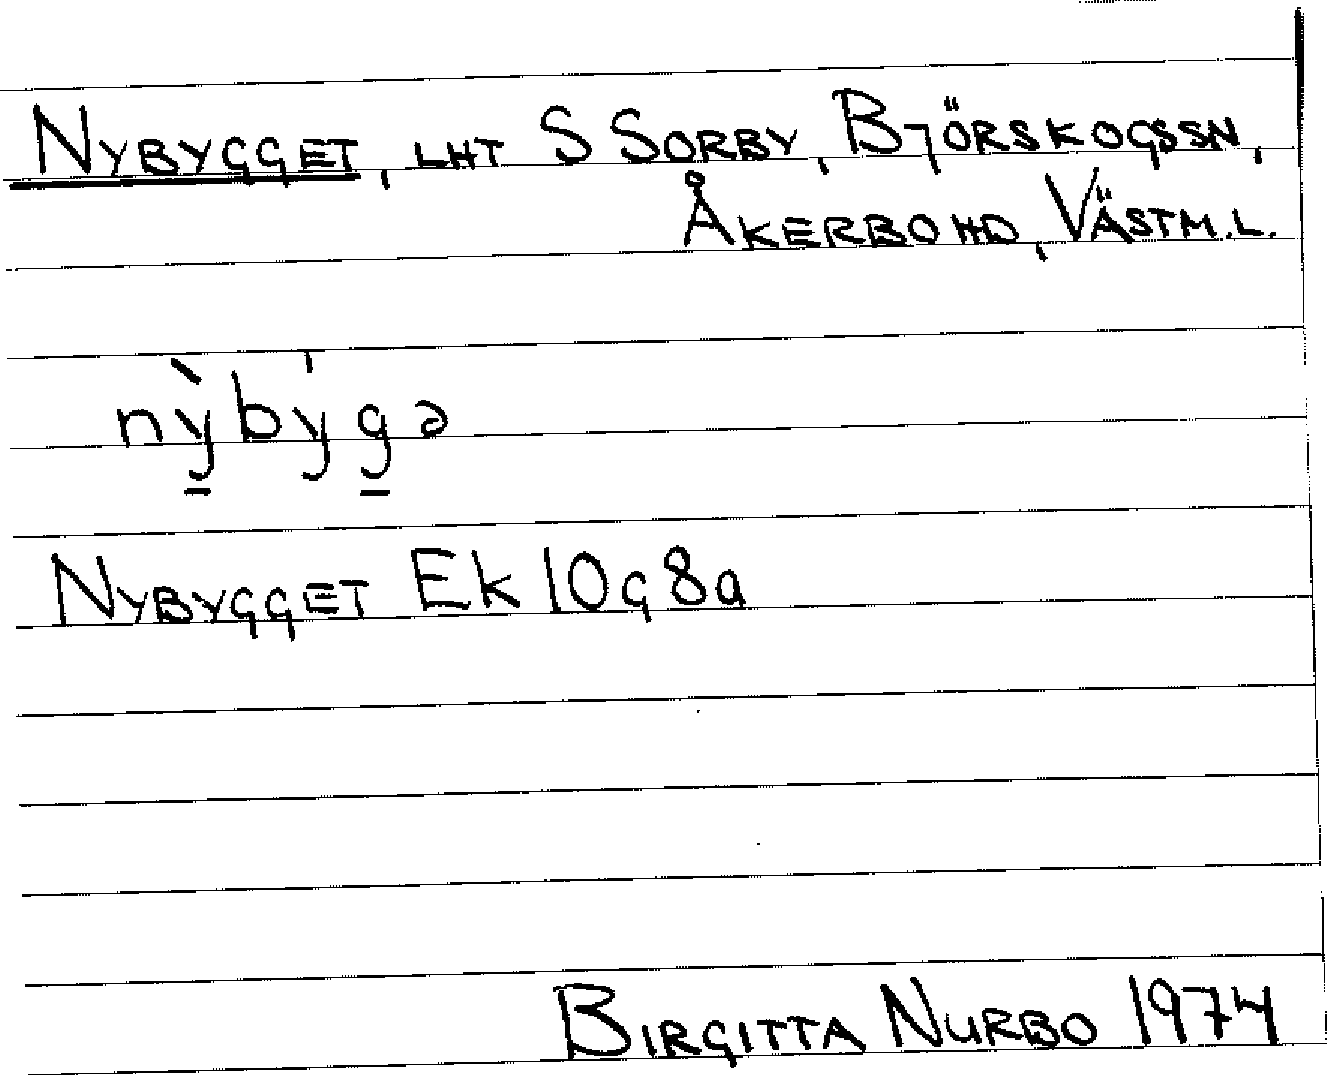 NYBYGGET, LHT S SORBY, BJÖRSKOGSSN,
ÅKERBO HD, VÄSTM.L.
nỳ̲býg̲ə
NYBYGGET Ek 10g8a
BIRGITTA NURBO 1974